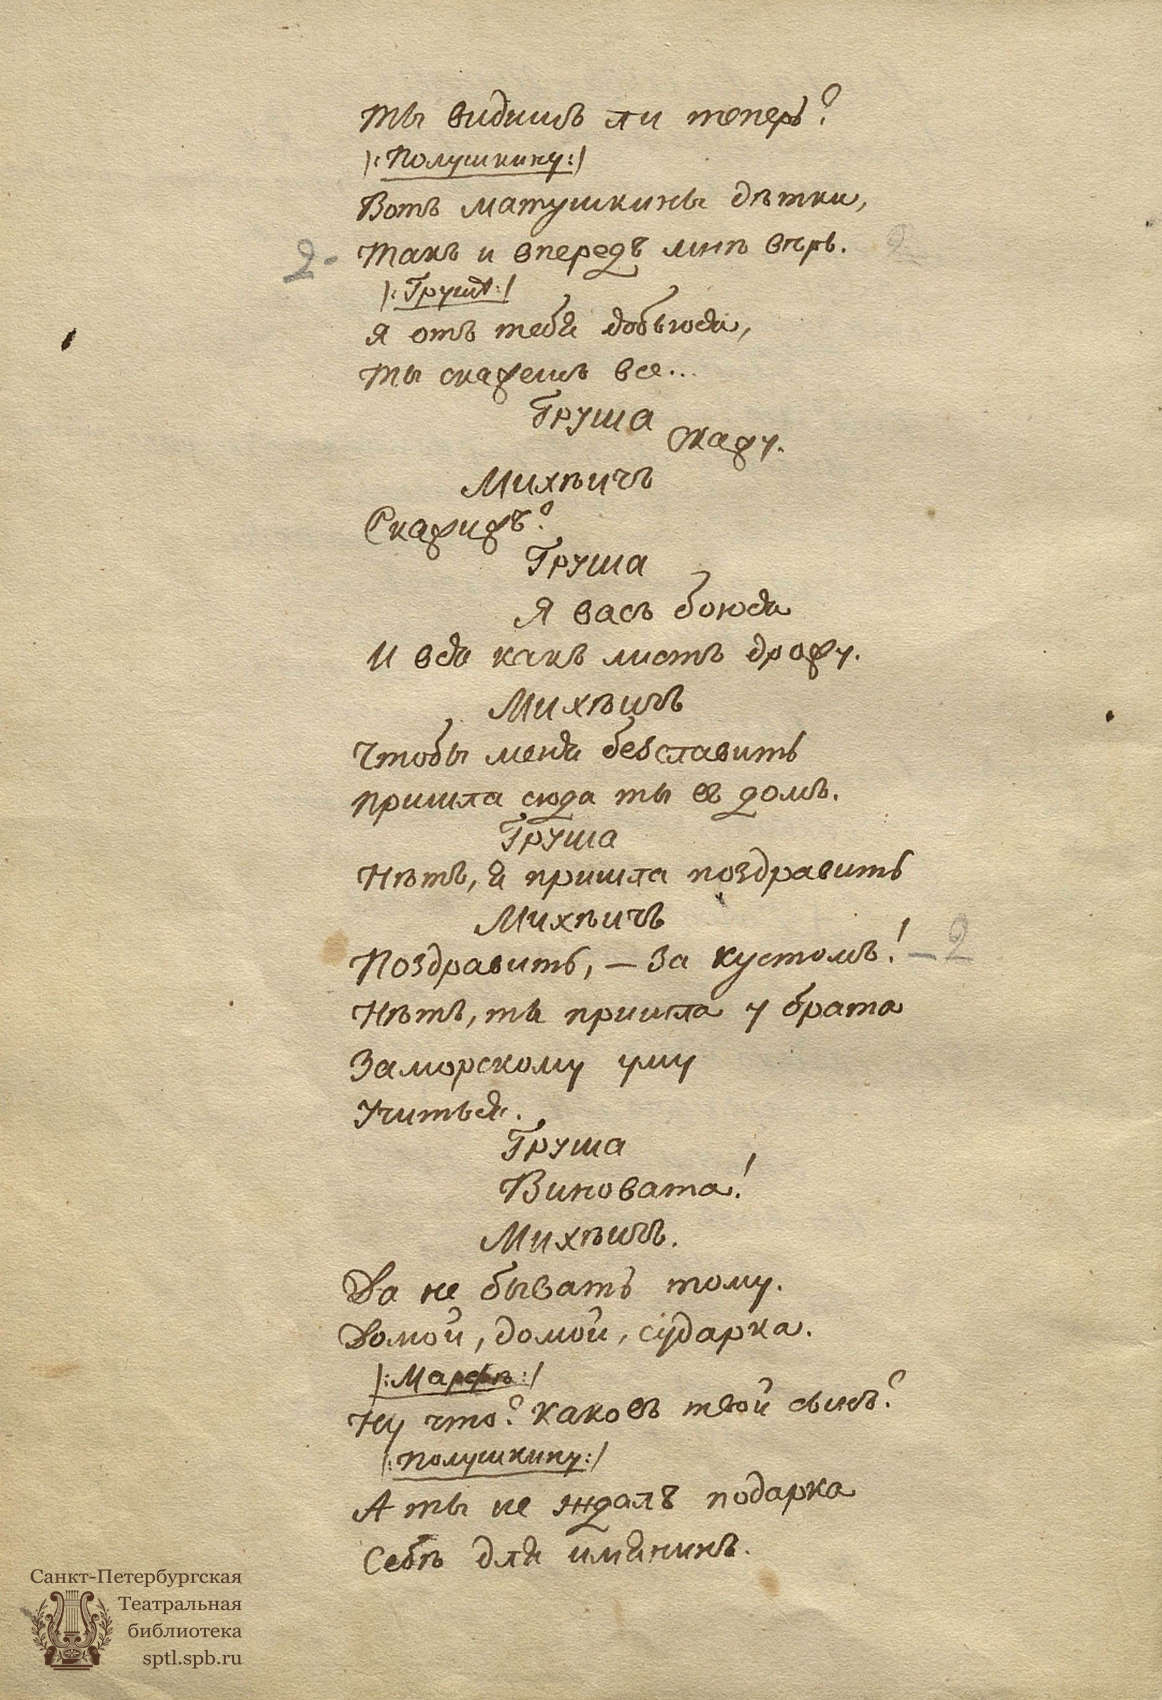 Ты видишъ ли теперь?
|:Полушкину:|
Вотъ матушкины дѣтки,
2- Такъ и впередъ мнѣ вѣрь. 2
|:Грушѣ:|
Я отъ тебя добьюся,
Ты скажешь все...
Груша
Скажу.
Михѣичъ
Скажижъ?
Груша
Я васъ боюся
И вся какъ листъ дрожу.
Михѣичъ
Чтобы меня безславить
Пришла сюда ты въ домъ.
Груша
Нѣтъ, я пришла поздравить
Михѣичъ
Поздравить, — За кустомъ! - 2
Нѣтъ, ты пришла у брата
Заморскому уму
Учиться.
Груша
Виновата!
Михѣичъ.
Да не бывать тому.
Домой, домой, сударка.
|:Марфѣ:|
Ну что? каковъ твой сынъ?
|:Полушкину:|
А ты не ждалъ подарка
Себѣ для имянинъ.
Санкт-Петербургская
Театральная
библиотека
sptl.spb.ru